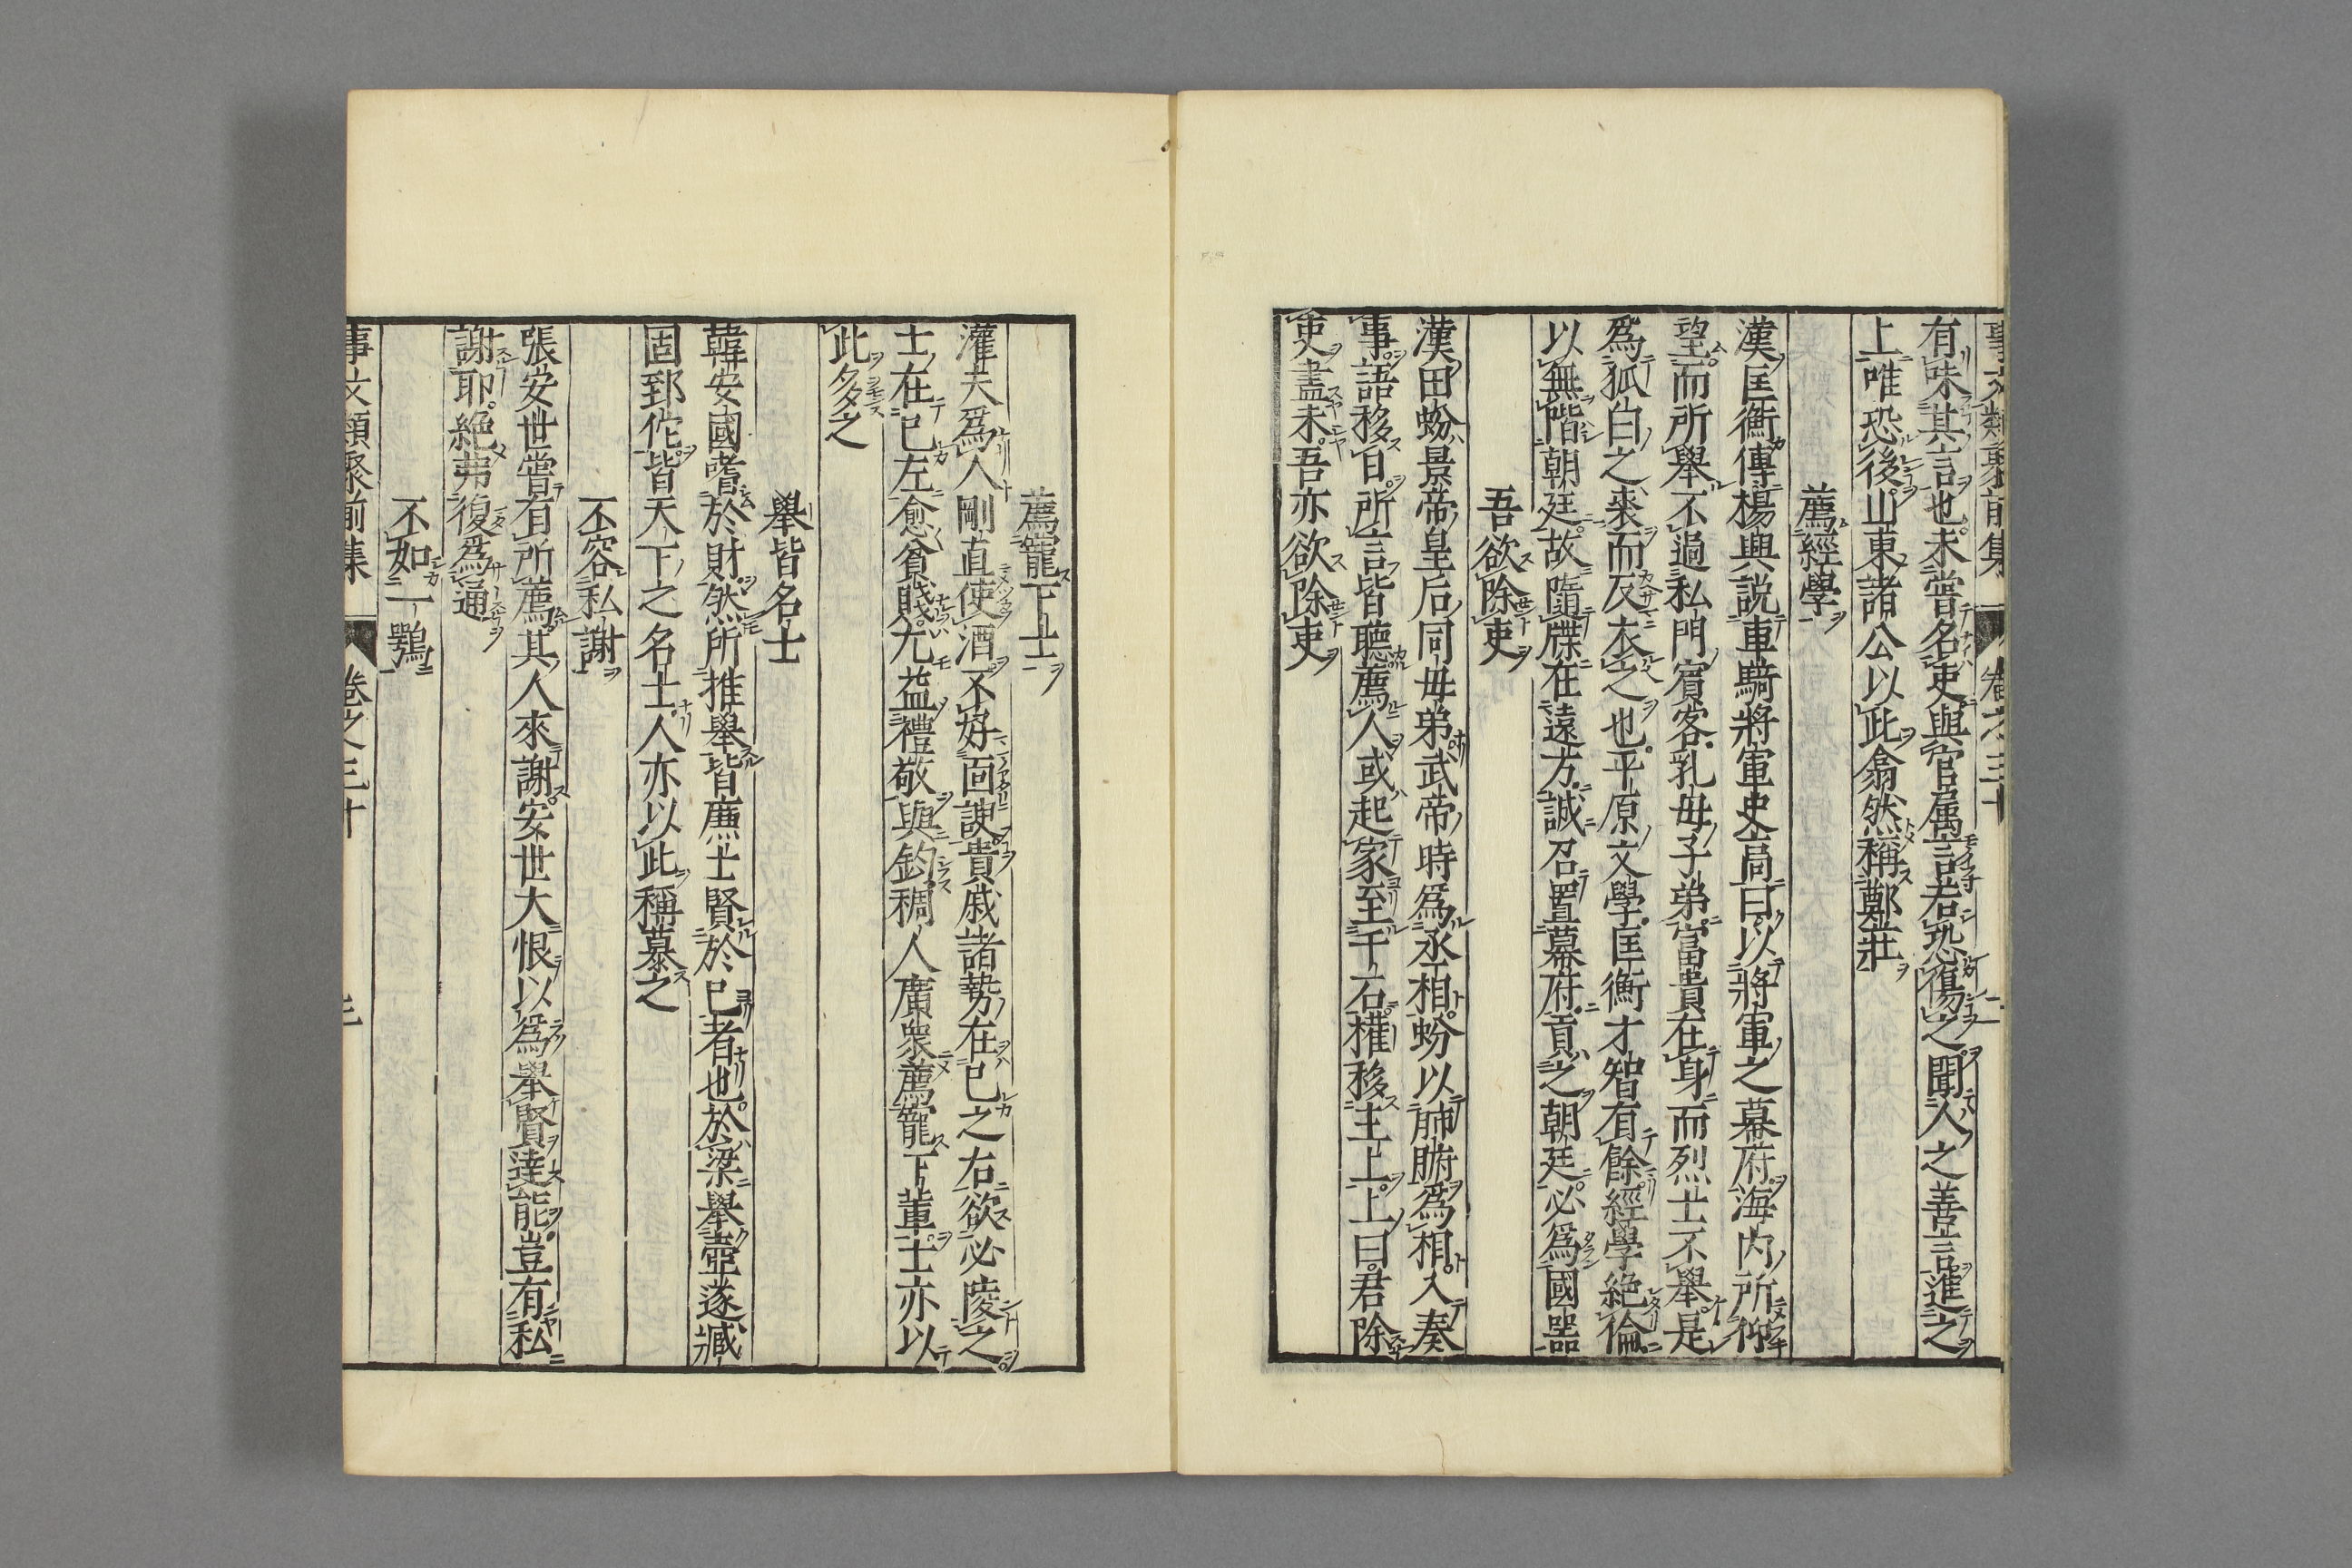 事文類聚前集 卷之三十 二
有味其言也未嘗名吏與官属言若恐傷之聞人之善言進之
上唯恐後山東諸公以此翕然稱鄭莊
薦經學
漢匡衡傳楊興説車騎將軍史高曰以將軍之幕府海内所仰
望而所舉不過私門賓客乳母子弟富貴在身而烈士不舉是
爲狐白之裘而反衣之也平原文學匡衡才智有餘經學絶倫
以無階朝廷故隨牒在遠方誠召置幕府貢之朝廷必爲國器
吾欲除吏
漢田蚡景帝皇后同母弟武帝時爲丞相蚡以肺腑爲相入奏
事語移日所言皆聽薦人或起家至千石權移主上上曰君除
吏盡未吾亦欲除吏
薦寵下士
灌夫爲人剛直使酒不好面諛貴戚諸勢在已之右欲必陵之
士在已左愈貧賤尤益禮敬與鈞稠人廣衆薦寵下輩士亦以
此多之
舉皆名士
韓安國嗜於財然所推舉皆廉士賢於已者也於梁舉壺遂臧
固郅佗皆天下之名士人亦以此稱慕之
不容私謝
張安世嘗有所薦其人來謝安世大恨以爲舉賢達能豈有私
謝耶絶弗復爲通
不如一鶚
事文類聚前集 卷之三十 三